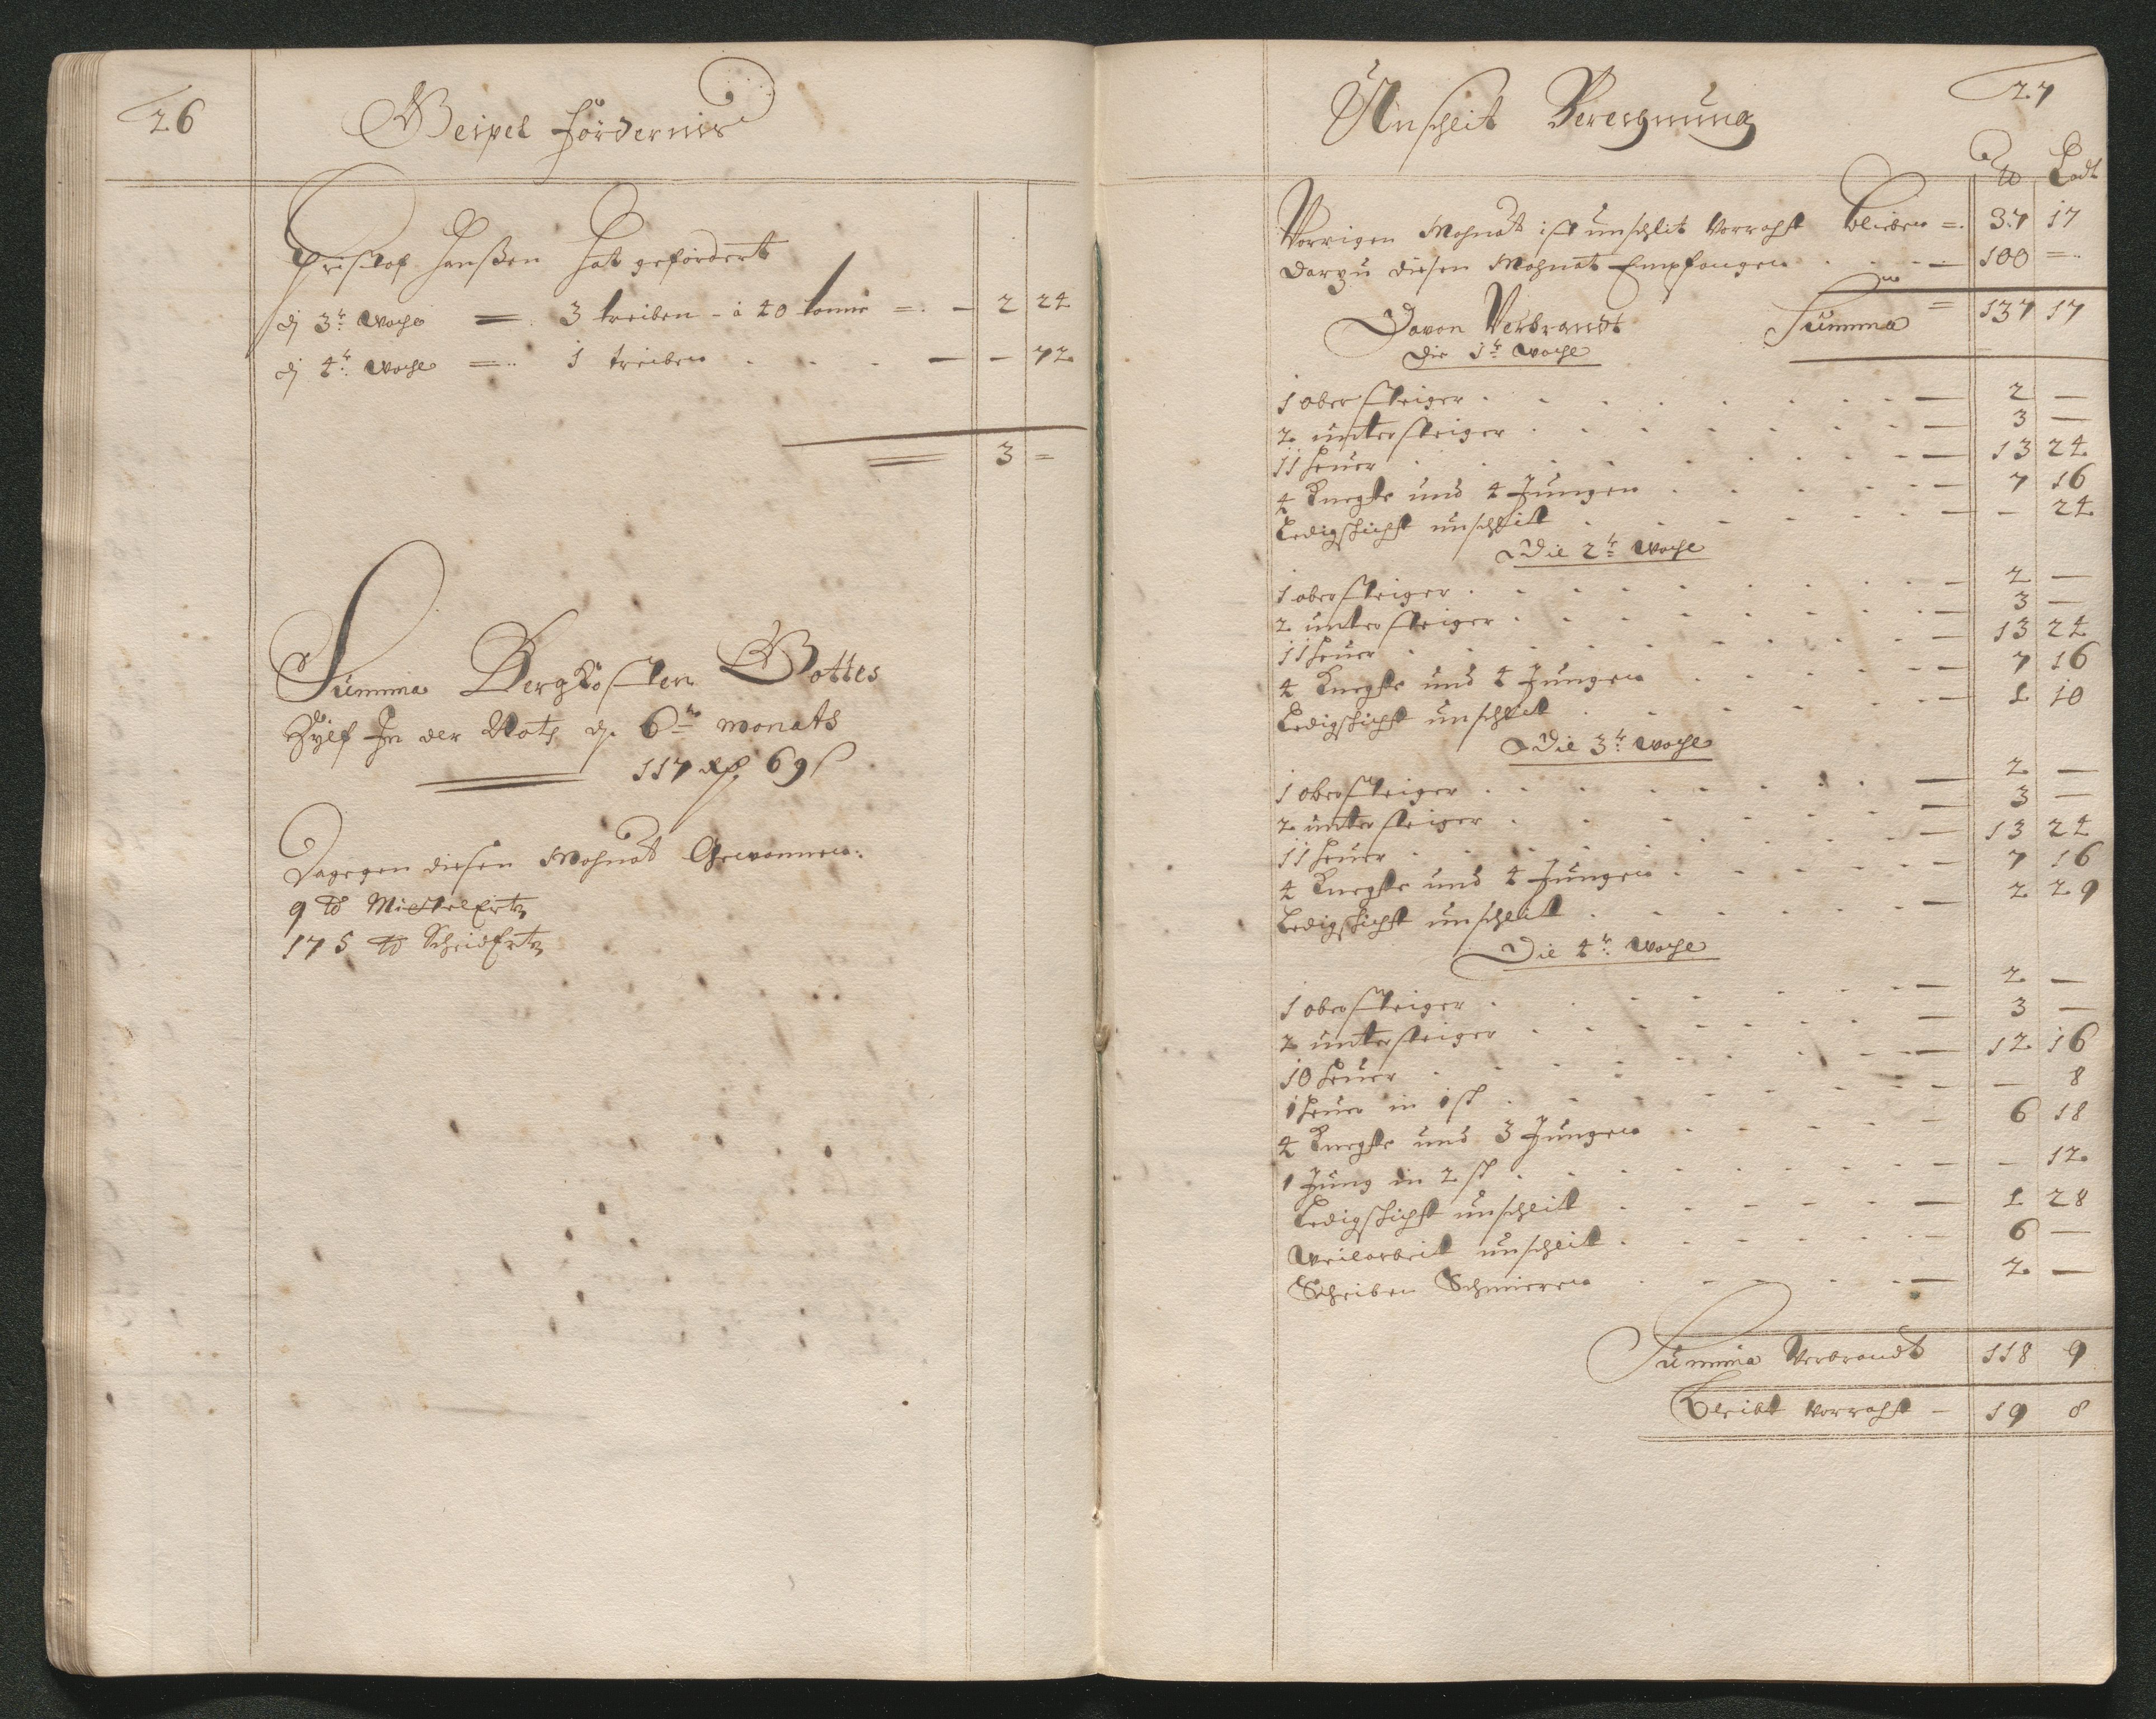 26
Geipel fördernis
Christof Hanßen Hat gefördert
dj 3te Woche = 3 treiben - à 40 tonne = - 2 24
dj 4te Woche = 1 treiben - - 72
3 =
Summa Bergkosten Gottes
Hylf In der Noth dß 6te monats
117 Rthl 69 ß
Dagegen diesen Mohnat Gewonnen:
9 tð Mittel Ertz
175 tð Scheid Ertz
27
Unschlit Berechnung
tt Lodt
Vorrigen Mohnat ist unschlit Vorraht blieben = 37 17
darzu diesen Mohnat Empfangen - 100 =
Davon Verbrandt Summa = 137 17
Die 1te Woche
1 obersteiger - 2 —
2 untersteiger - 3 —
11 heuer - 13 24
4 Knechte und 4 Jungen - 7 16
Ledigschicht unschlit - - 24
Die 2te Woche
1 obersteiger - 2 —
2 untersteiger - 3 —
11 heuer - 13 24
4 Knechte und 4 Jungen - 7 16
Ledigschicht unschlit - 1 10
Die 3te Woche
1 obersteiger - 2 —
2 untersteiger - 3 —
11 heuer - 13 24
4 Knechte und 4 Jungen - 7 16
Ledigschicht unschlit - 2 29
Die 4te Woche
1 obersteiger - 2 —
2 untersteiger - 3 —
10 heuer - 12 16
1 heuer in 1 sch - — 8
4 Knechte und 3 Jungen - 6 18
1 Jung in 2 sch - — 12
Ledigschicht unschleit - 1 28
Weilarbeit unschleit - 6 —
Scheiben Schmieren - 2 —
Summa Verbrandt 118 9
Bleibt Vorraht - 19 8